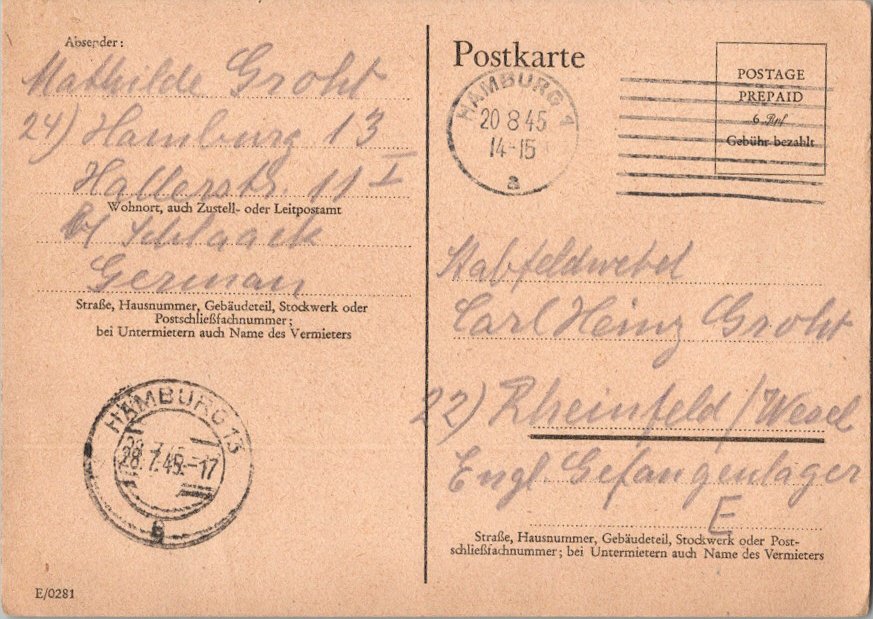 Absender:
Mathilde Groht
24) Hamburg 13
Hallerstr. 11 I
Wohnort, auch Zustell- oder Leitpostamt
b/ Schlaack
German
Straße, Hausnummer, Gebäudeteil, Stockwerk oder
Postschließfachnummer;
bei Untermietern auch Name des Vermieters
HAMBURG 13
28.7.45.-17
E/0281
Postkarte
HAMBURG 1
20 8 45
14-15
a
POSTAGE
PREPAID
6 Rpf
Gebühr bezahlt
Stabfeldwebel
Carl Heinz Groht
22) Rheinfeld/Wesel
Engl. Gefangenlager
E
Straße, Hausnummer, Gebäudeteil, Stockwerk oder Post-
schließfachnummer; bei Untermietern auch Name des Vermieters